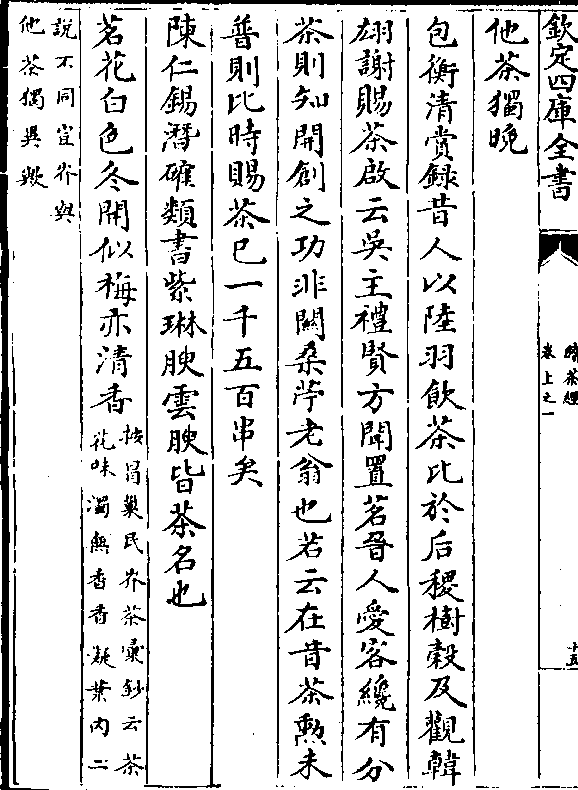 欽定四庫全書
續茶經
卷上之一
十五
他茶獨晚
包衡清賞録昔人以陸羽飲茶比於后稷樹穀及觀韓
翃謝賜茶啟云吳主禮賢方聞置茗晉人愛客纔有分
茶則知開創之功非闗桑苧老翁也若云在昔茶勲未
普則比時賜茶已一千五百串矣
陳仁錫潛確類書紫琳腴雲腴皆茶名也
茗花白色冬開似梅亦清香
按冒巢民岕茶彚鈔云茶
花味濁無香香凝葉内二
說不同豈岕與
他茶獨異歟